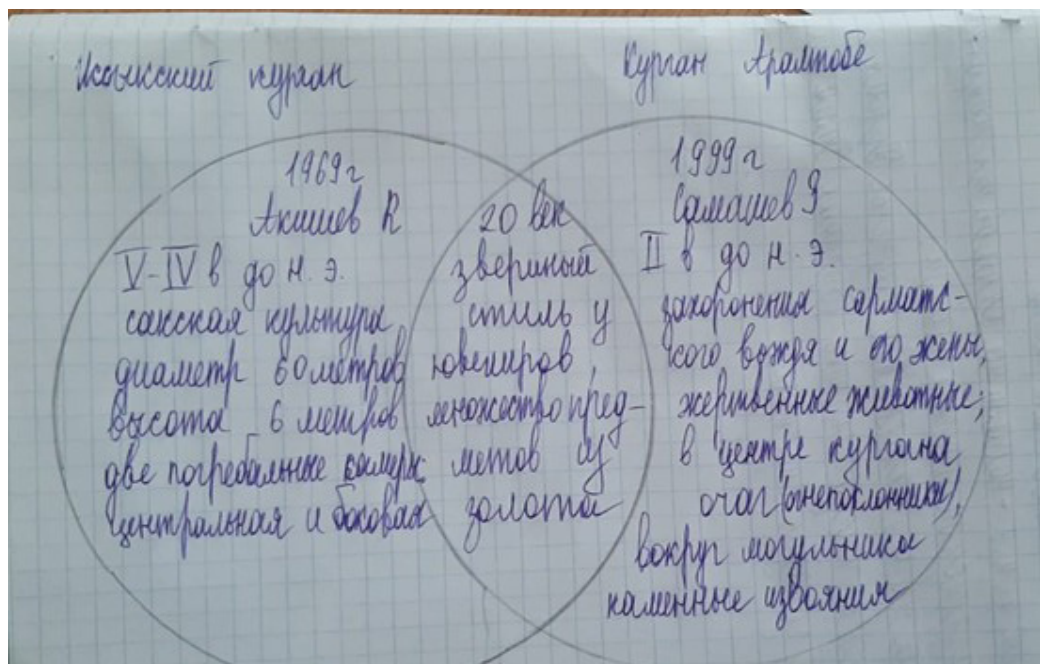 Иссыкский курган
Курган Аралтобе
1969г
Акишев К
V-IV в до н.э.
сакская культура
диаметр 60 метров
высота 6 метров
две погребальные камеры
центральная и боковая
20 век
звериный
стиль у
ювелиров,
множество пред-
метов из
золота
1999г
Самашев З
II в до н.э.
захоронения сарматс-
кого вождя и его жены,
жертвенные животные;
в центре кургана
очаг (огнепоклонники),
вокруг могильника
каменные изваяния